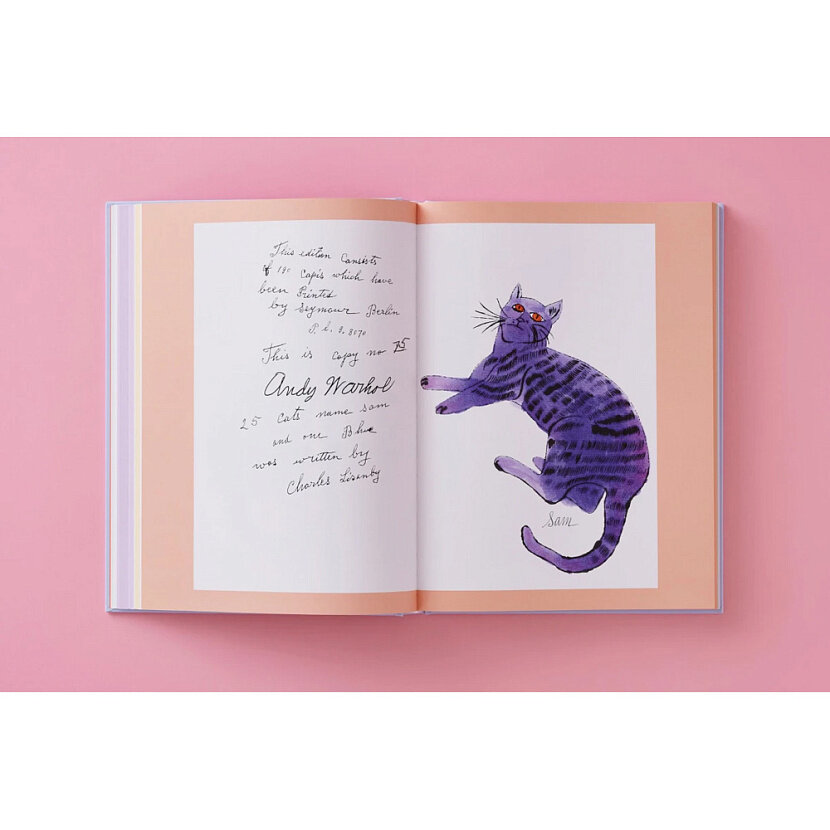 This edition Consists
of 190 Capis which have
been Printed
by Seymour Berlin
P. l. 3. 8070
This is copy no 75
Andy Warhol
25 Cats name sam
and one Blue
was written by
Charles Lisanby
Sam